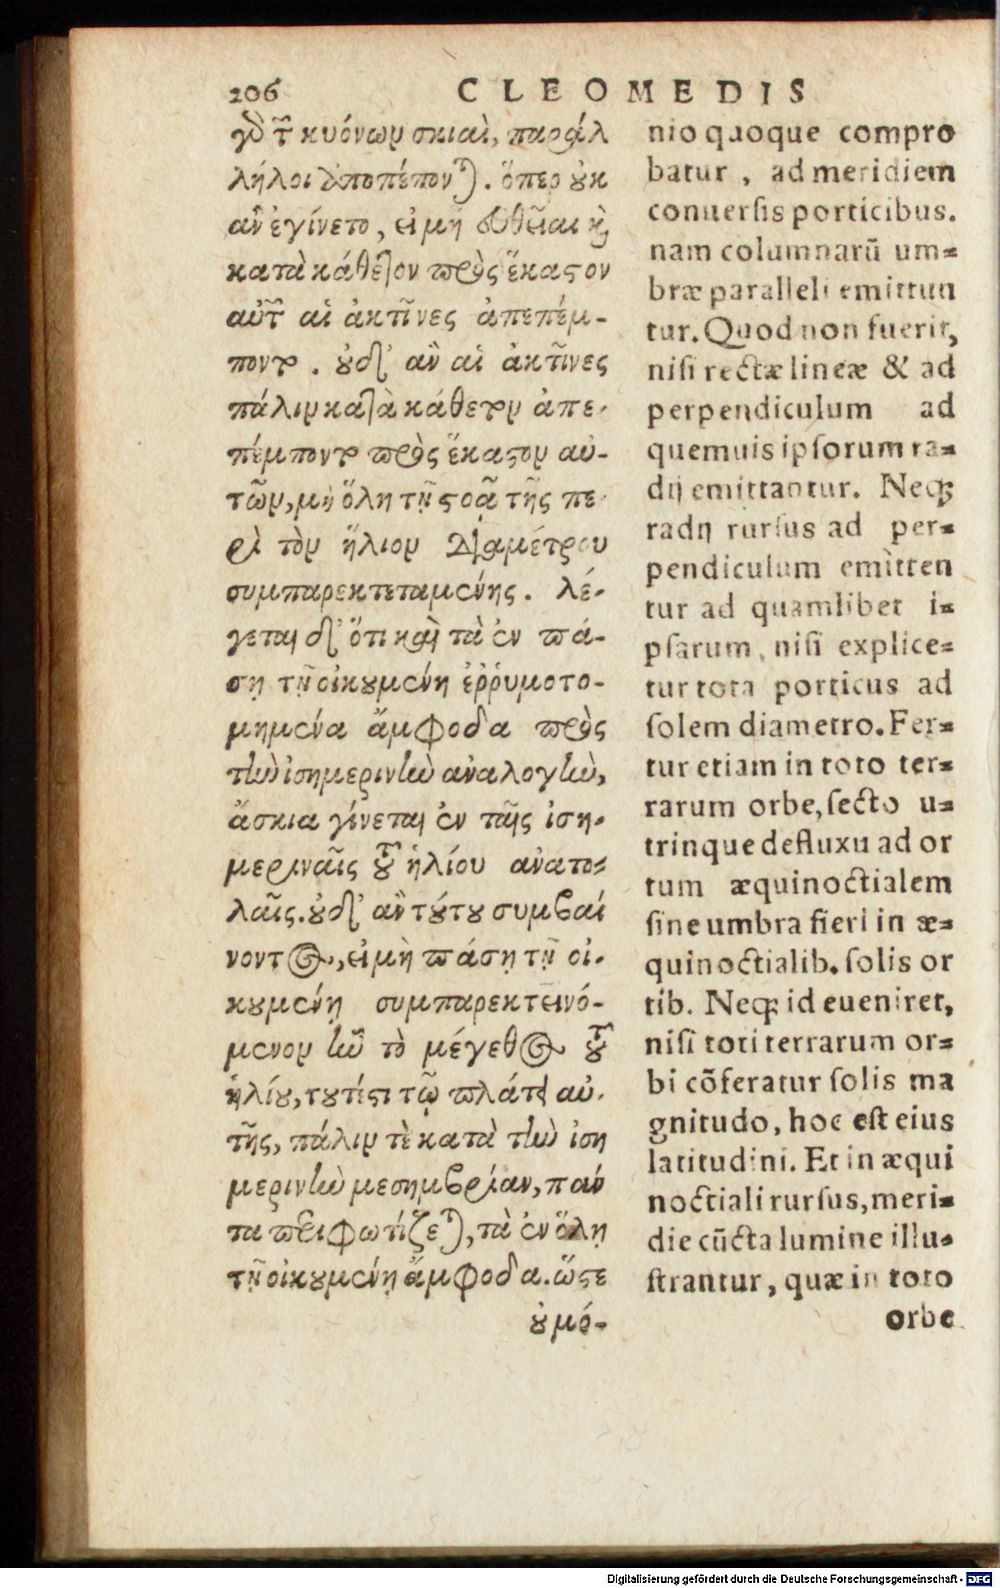 206 CLEOMEDIS
γὸ τῶ κυόνων σκιαὶ, παράλ
ληλοι ἀποπέπονται. ὅπερ οὐκ
ἂν ἐγίνετο, εἰ μὴ εὐθεῖαι καὶ
κατὰ κάθετον πρὸς ἕκαστον
αὐτῶ αἱ ἀκτῖνες ἀπεπέμ-
ποντο. οὐδ' ἂν αἱ ἀκτῖνες
πάλιν κατὰ κάθετον ἀπε-
πέμποντο πρὸς ἕκαστον αὐ-
τῶν, μὴ ὅλῃ τῇ στοᾷ τῆς πε-
ρὶ τὸν ἥλιον διαμέτρου
συμπαρεκτεταμένης. λέ-
γεται δ' ὅτι καὶ τὰ ἐν πά-
σῃ τῇ οἰκουμένῃ ἐῤῥυμοτο-
μημένα ἄμφοδα πρὸς
τὴν ἰσημερινὴν ἀναλογὴν,
ἄσκια γίνεται ἐν ταῖς ἰση-
μεριναῖς τοῦ ἡλίου ἀνατο-
λαῖς. οὐδ' ἂν τούτου συμβαί
νοντος, εἰ μὴ πάσῃ τῇ οἰ-
κουμένῃ συμπαρεκτεινό-
μενον ἦν τὸ μέγεθος τοῦ
ἡλίου, τουτέστι τῷ πλάτει αὐ-
τῆς, πάλιν τὲ κατὰ τὴν ἰση
μερινὴν μεσημβρίαν, πάν
τα περιφωτίζεται, τὰ ἐν ὅλῃ
τῇ οἰκουμένῃ ἄμφοδα. ὥστε
οὐ μό-
nio quoque compro
batur, ad meridiem
conuersis porticibus.
nam columnarū um-
bræ paralleli emittun
tur. Quod non fuerit,
nisi rectæ lineæ & ad
perpendiculum ad
quemuis ipsorum ra-
dij emittantur. Neq;
radij rursus ad per-
pendiculum emitten
tur ad quamlibet i-
psarum, nisi explice-
tur tota porticus ad
solem diametro. Fer-
tur etiam in toto ter-
rarum orbe, secto u-
trinque defluxu ad or
tum æquinoctialem
sine umbra fieri in æ-
quinoctialib. solis or
tib. Neq; id eueniret,
nisi toti terrarum or-
bi cōferatur solis ma
gnitudo, hoc est eius
latitudini. Et in æqui
noctiali rursus, meri-
die cūcta lumine illu-
strantur, quæ in toto
orbe
Digitalisierung gefördert durch die Deutsche Forschungsgemeinschaft - DFG